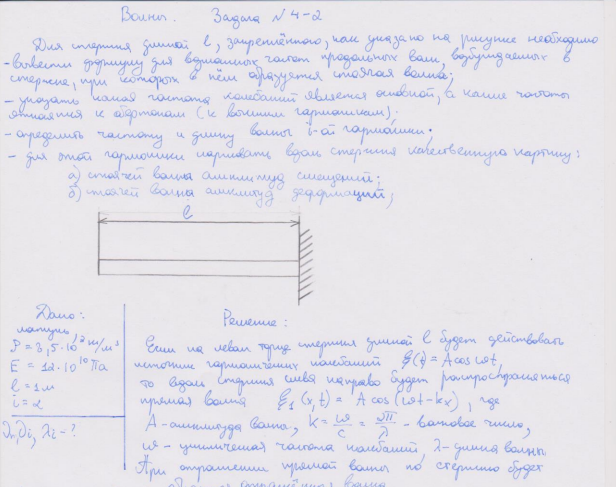 Волны. Задача №4-2
Для стержня длиной l, закреплённого, как указано на рисунке необходимо
- вывести формулу для возможных частот продольных волн, возбуждаемых в
стержне, при которых в нём образуется стоячая волна;
- указать какая частота колебаний является основной, а какие частоты
относятся к обертонам (к высшим гармоникам);
- определить частоту и длину волны i-ой гармоники;
- для этой гармоники нарисовать вдоль стержня качественную картину:
а) стоячей волны амплитуд смещений;
б) стоячей волны амплитуд деформаций;
l
Дано:
латунь
E = 12·10¹⁰ Па
l = 1м
i = 2
λi - ?
Решение:
Если на левом торце стержня длиной l будет действовать
источник гармонических колебаний ξ(t) = A cos ωt,
то вдоль стержня слева направо будет распространяться
прямая волна ξ₁(x,t) = A cos(ωt-kx), где
A - амплитуда волны, k = ω/c = 2π/λ - волновое число,
ω - циклическая частота колебаний, λ - длина волны.
При отражении прямой волны по стержню будет
отражённая волна